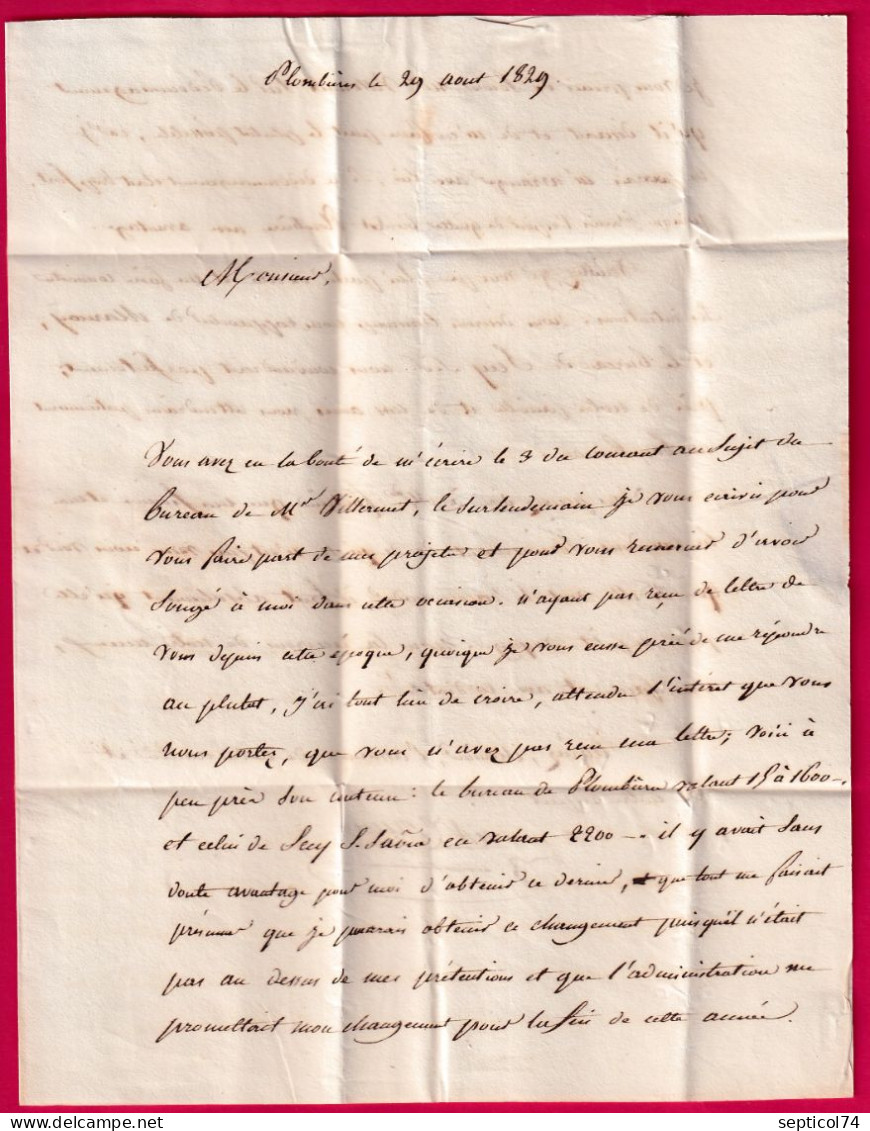 Plombières le 29 aout 1829
Monsieur,
Vous avez eu la bonté de m'écrire le 3 du courant au Sujet du
bureau de Mr Villermet, le Surlendemain je vous écrivis pour
vous faire part de mes projets et pour vous remercier d'avoir
Songé à moi dans cette occasion. n'ayant pas reçu de lettre de
vous depuis cette époque, quoique je vous eusse prié de me répondre
au plutot, j'ai tout lieu de croire, attendu l'intéret que vous
nous portez, que vous n'avez pas reçu ma lettre; voici à
peu près Son contenu: le bureau de Plombières valant 15 à 1600-.
et celui de Scey S. en valant 2200-. il y avait Sans
doute avantage pour moi d'obtenir ce dernier, et que tout me faisait
présumer que je pourais obtenir ce changement puisqu'il n'était
pas au dessus de mes prétentions et que l'administration me
promettait mon changement pour la fin de cette année.
septicol74